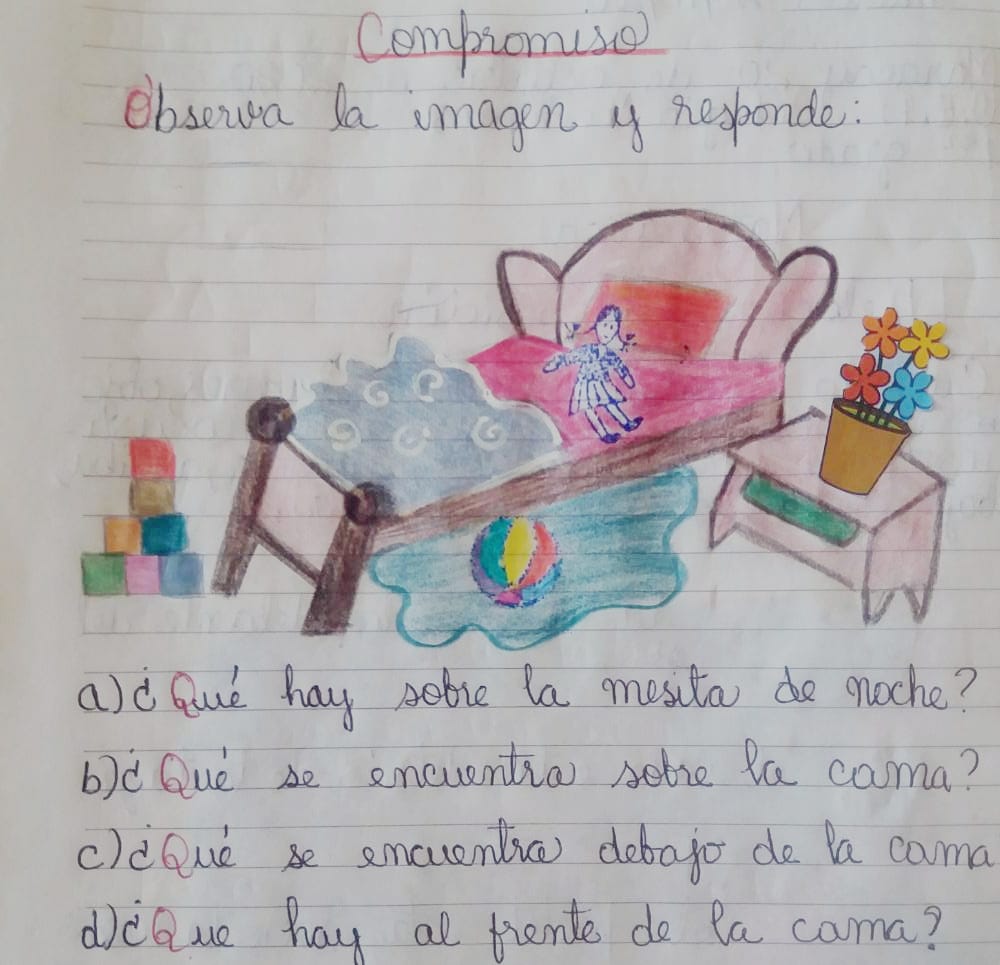 Compromiso
Observa la imagen y responde:
a) ¿Qué hay sobre la mesita de noche?
b) ¿Qué se encuentra sobre la cama?
c) ¿Qué se encuentra debajo de la cama
d) ¿Que hay al frente de la cama?